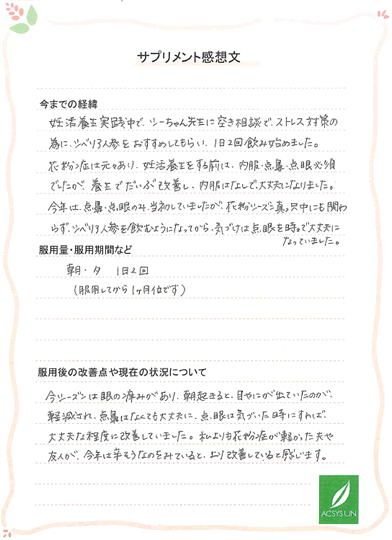 サプリメント感想文
今までの経緯
妊活養生実践中で、ツーちゃん先生に空き相談で、ストレス対策の
為に、シベリア人参をおすすめしてもらい、1日2回飲み始めました。
花粉症は元々あり、妊活養生をする前は、内服・点鼻・点眼必須
でしたが、養生でだいぶ改善し、内服はなしで大丈夫になりました。
今年は、点鼻・点眼のみ、当初していましたが、花粉シーズン真っ只中にも関わ
らず、シベリア人参を飲むようになってから、気づけば点眼を時々で大丈夫に
なっていました。
服用量・服用期間など
朝・夕 1日2回
(服用してから1ヶ月位です)
服用後の改善点や現在の状況について
今シーズンは眼の痒みがあり、朝起きると、目やにが出ていたのが、
軽減され、点鼻はなくても大丈夫に、点眼は気づいた時にすれば、
大丈夫な程度に改善していました。私よりも花粉症が軽かった夫や
友人が、今年は辛そうなのをみていると、より改善していると感じます。
ACSYS UN